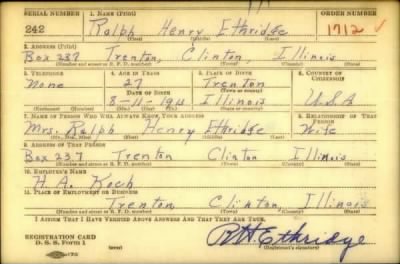 SERIAL NUMBER 1. NAME (Print) ORDER NUMBER
242 Ralph Henry Ethridge 1712 ✓
2. ADDRESS (Print)
Box 237 Trenton, Clinton, Illinois
(Number and street or R. F. D. number) (Town) (County) (State)
3. TELEPHONE 4. AGE IN YEARS 5. PLACE OF BIRTH 6. COUNTRY OF CITIZENSHIP
None 27 Trenton
DATE OF BIRTH
8-11-1913 Illinois U.S.A
(Exchange) (Number) (Mo.) (Day) (Yr.) (State or country)
7. NAME OF PERSON WHO WILL ALWAYS KNOW YOUR ADDRESS 8. RELATIONSHIP OF THAT PERSON
Mrs. Ralph Henry Ethridge Wife
(Mr., Mrs., Miss) (First) (Middle) (Last)
9. ADDRESS OF THAT PERSON
Box 237 Trenton Clinton Illinois
(Number and street or R. F. D. number) (Town) (County) (State)
10. EMPLOYER'S NAME
H. A. Koch
11. PLACE OF EMPLOYMENT OR BUSINESS
Trenton Clinton, Illinois
(Number and street or R. F. D. number) (Town) (County) (State)
I AFFIRM THAT I HAVE VERIFIED ABOVE ANSWERS AND THAT THEY ARE TRUE.
REGISTRATION CARD
D. S. S. Form 1 RH Ethridge
(Registrant's signature)